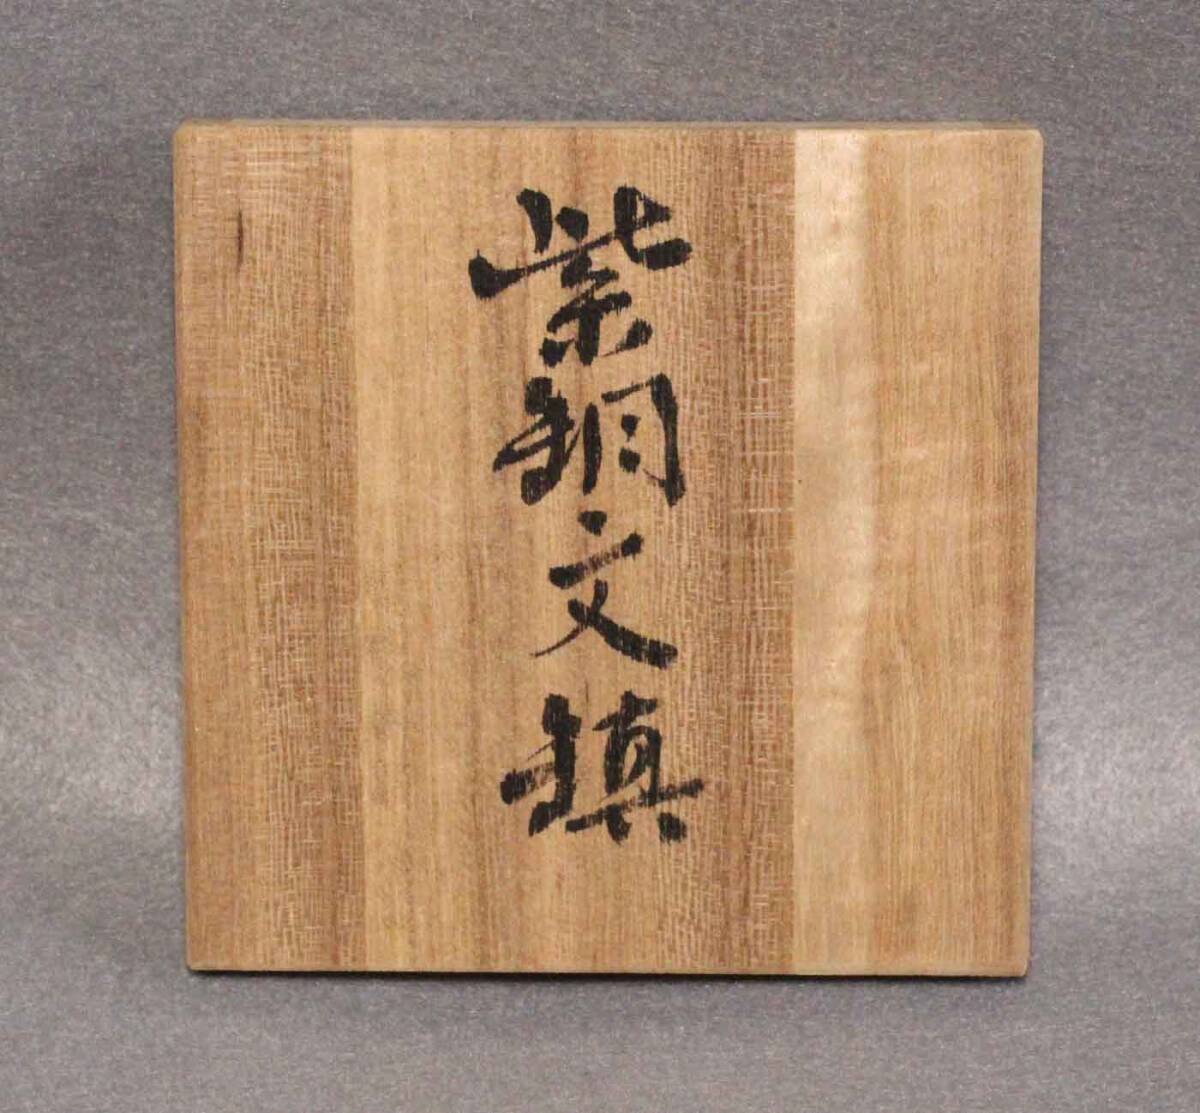 紫銅文鎮